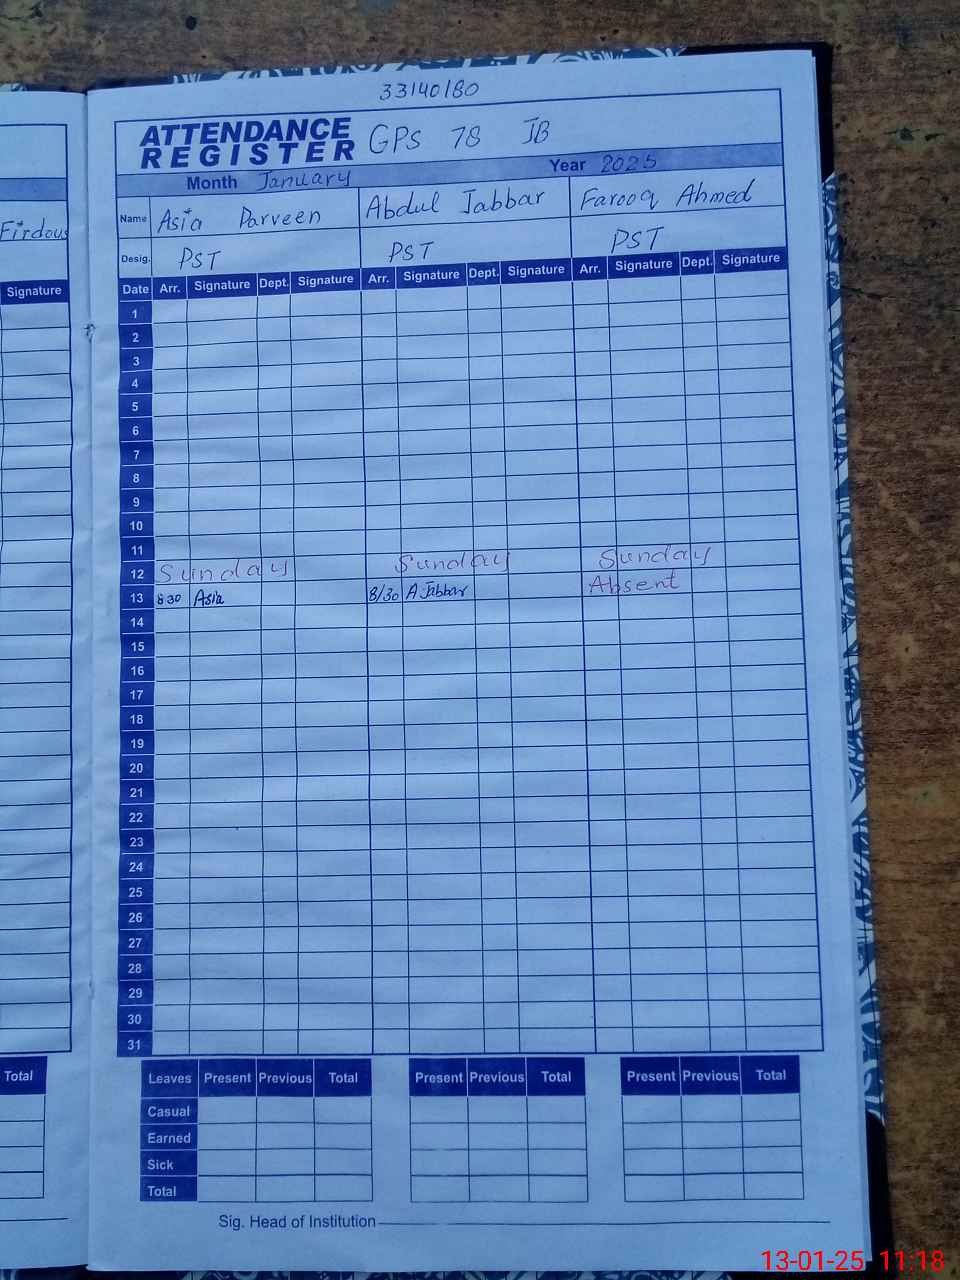 33140180
ATTENDANCE REGISTER GPS 78 JB
Month January Year 2025
Firdous
Name Asia Parveen Abdul Jabbar Farooq Ahmed
Desig. PST PST PST
Signature
Date Arr. Signature Dept. Signature Arr. Signature Dept. Signature Arr. Signature Dept. Signature
1
2
3
4
5
6
7
8
9
10
11
12 Sunday Sunday Sunday
13 8 30 Asia 8/30 A Jabbar Absent
14
15
16
17
18
19
20
21
22
23
24
25
26
27
28
29
30
31
Total
Leaves Present Previous Total Present Previous Total Present Previous Total
Casual
Earned
Sick
Total
Sig. Head of Institution
13-01-25 11:18